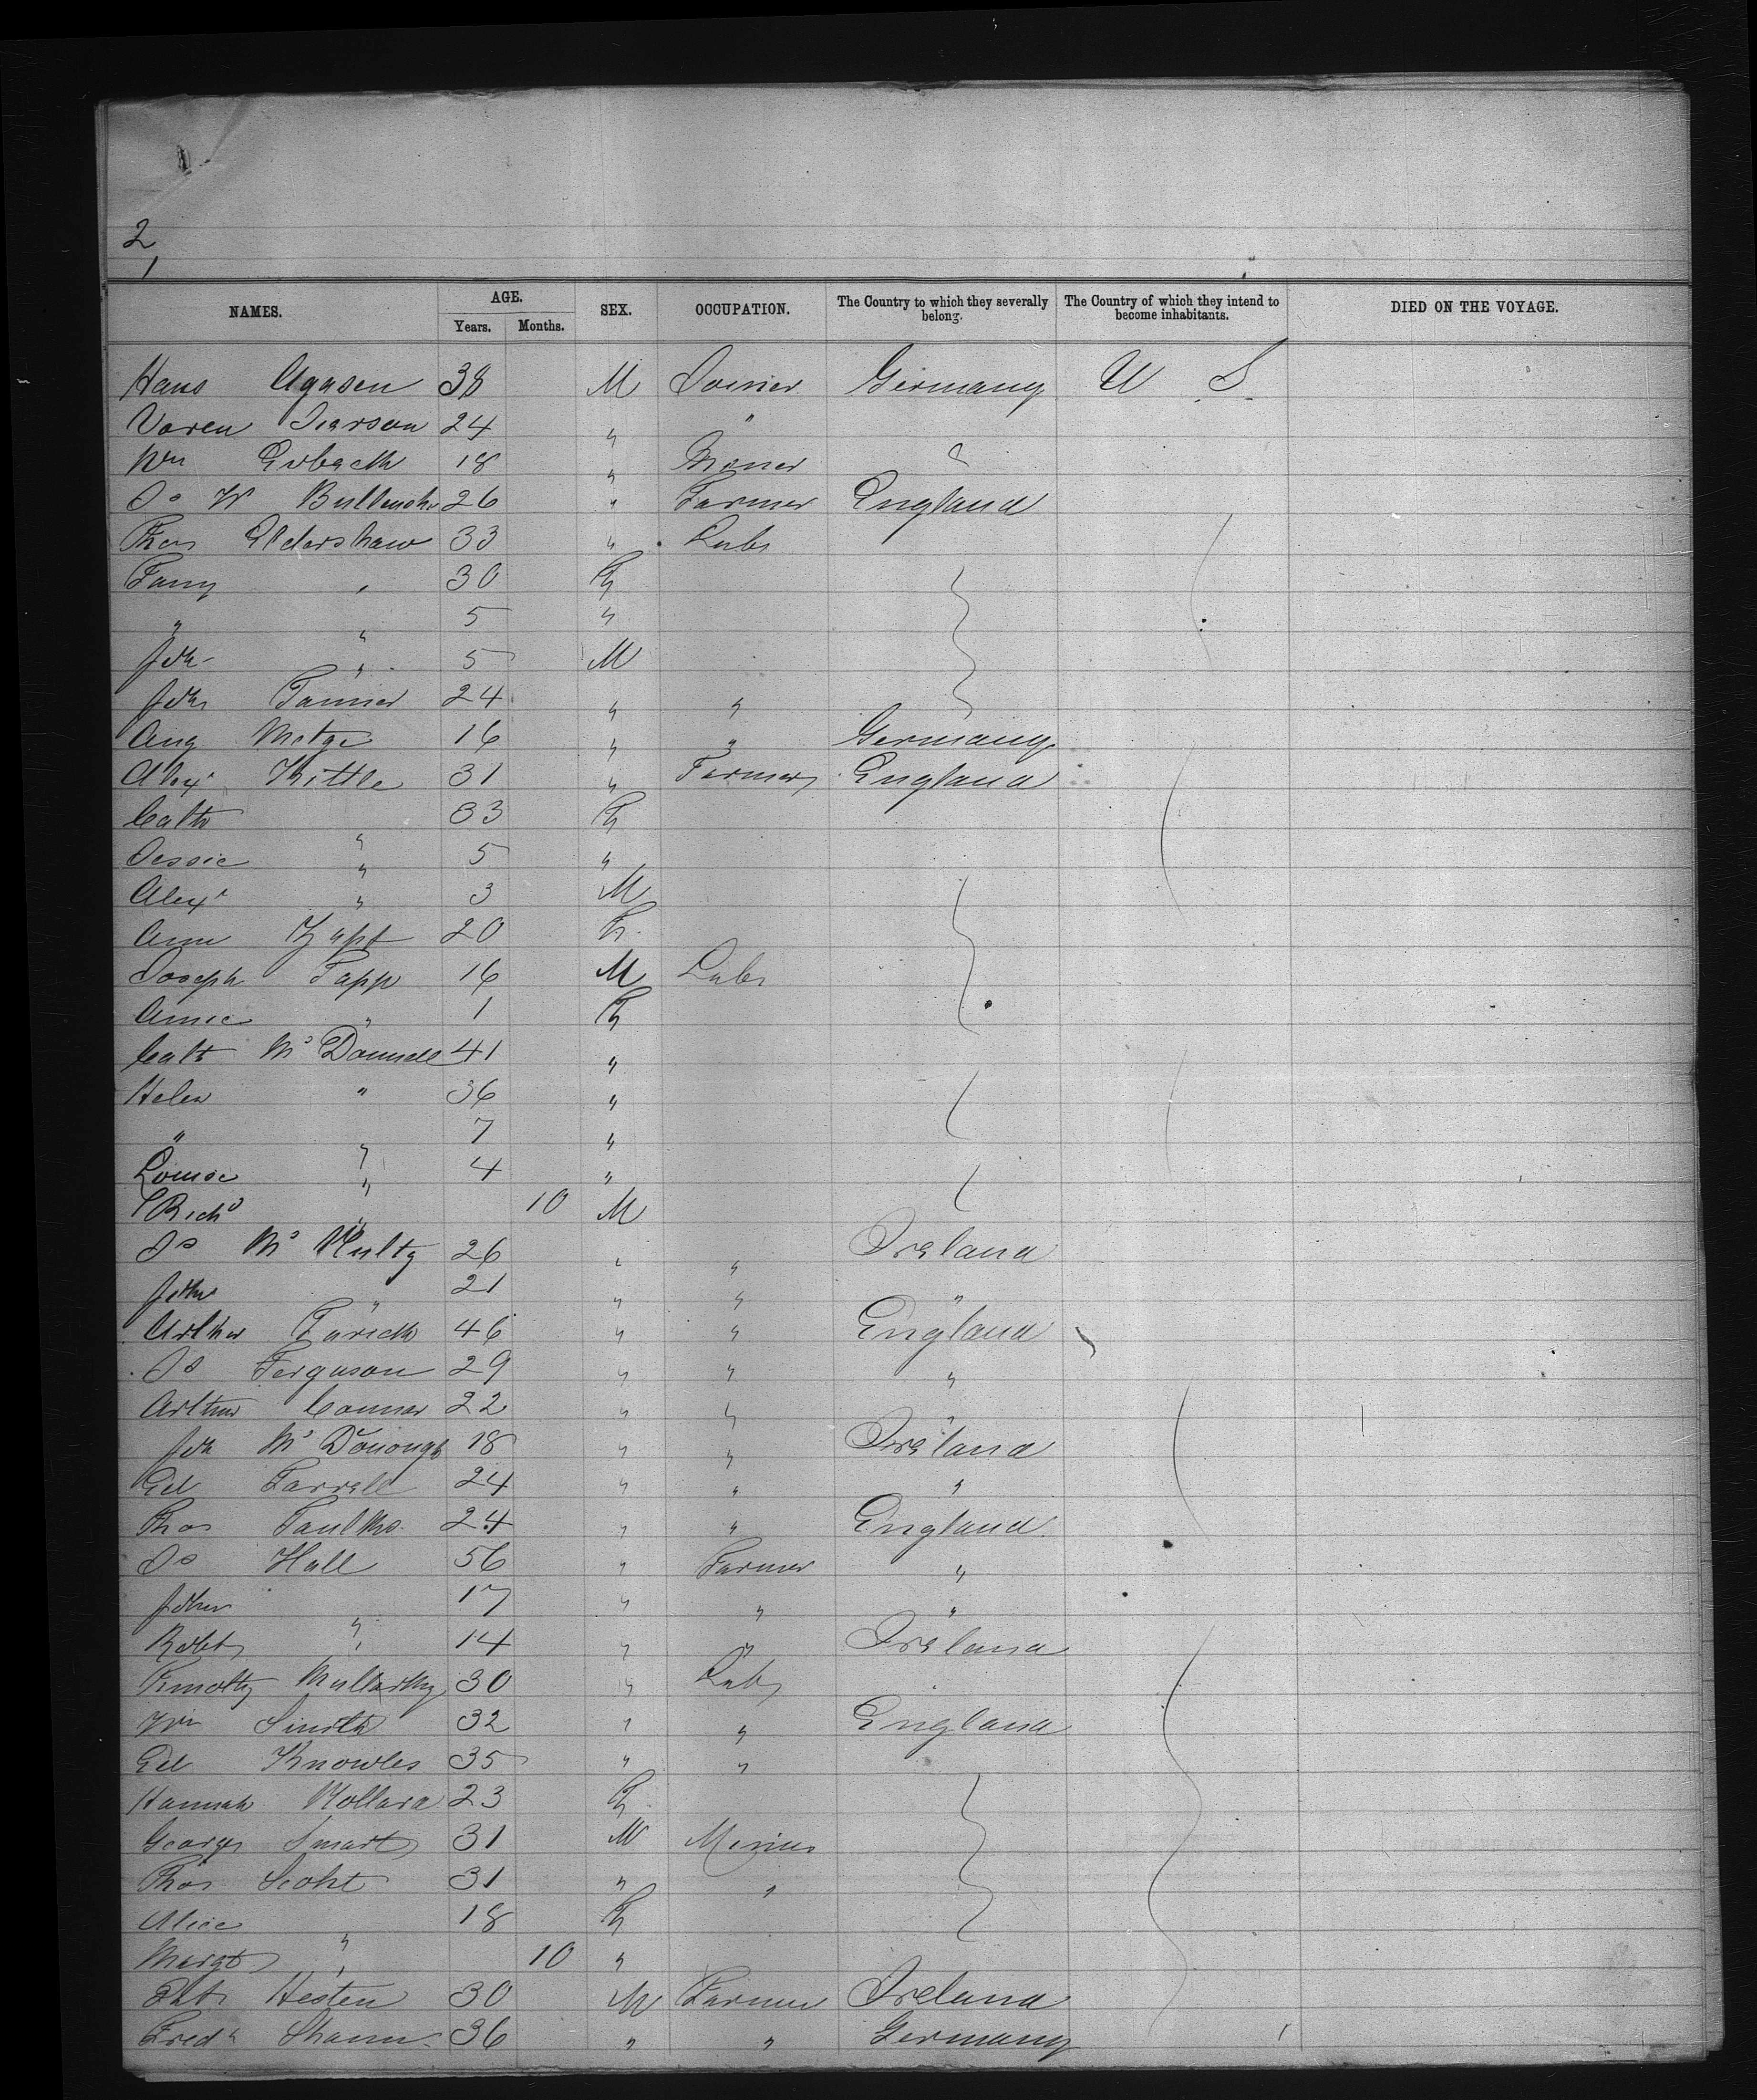 2
1
NAMES. AGE. SEX. OCCUPATION. The Country to which they severally belong. The Country of which they intend to become inhabitants. DIED ON THE VOYAGE.
Years. Months.
Hans Aggsen 38 M Joiner Germany U S
Soren Iverson 24 " "
Wm 18 " "
Js W 26 " Farmer England
Thos Eldershaw 33 " Labr
Fanny " 30 F
" " 5 "
Jdh " 5 M
Jdh Tanner 24 " "
Aug Metge 16 " " Germany
Alexr Kittle 31 " Farmer England
Cath " 33 F
Jessie " 5 "
Alexr " 3 M
Ann 20 F
Joseph Tapp 16 M Labr
Annie " 1 F
Cath Mc Donnell 41 "
Helen " 36 "
" " 7 "
Louise " 4 "
Richd " 10 M
Js Mc Nulty 26 " " Ireland
John " 21 " " "
Arthur 46 " " England
Js Ferguson 29 " " "
Arthur Connor 22 " " "
Jdh Mc Donough 18 " " Ireland
Ed Farrell 24 " " "
Thos Faulks 24 " " England
Js Hall 56 " Farmer "
John " 17 " " "
Robt " 14 " " Ireland
Timothy McCarthy 30 " Labr
Wm Smith 32 " " England
Ed Knowles 35 " "
Hannah 23 F
George Smart 31 M Miner
Thos Scoht 31 " "
Alice " 18 F
Margt " 10 "
Hesten 30 M Farmer Ireland
Fredk Shann 36 " " Germany